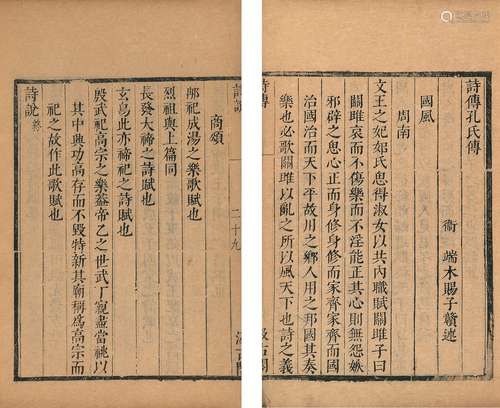 詩傳孔氏傳
衞 端木賜子贛述
國風
周南
文王之妃姒氏思得淑女以共內職賦關雎子曰
關雎哀而不傷樂而不淫能正其心則無怨嫉
邪辟之思心正而身修身修而家齊家齊而國
治國治而天下平故用之鄉人用之邦國其奏
樂也必歌關雎以亂之所以風天下也詩之義
詩傳
汲古閣
商頌
那祀成湯之樂歌賦也
烈祖與上篇同
長發大禘之詩賦也
玄鳥此亦禘祀之詩賦也
殷武祀高宗之樂蓋帝乙之世武丁親盡當祧以
其中興功高存而不毀特新其廟稱爲高宗而
祀之故作此歌賦也
詩說終
詩說
二十九